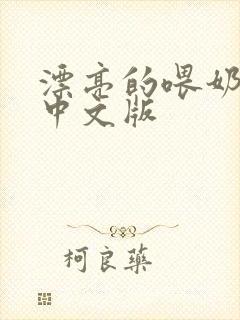 漂亮的喂奶
中文版
柯良藥